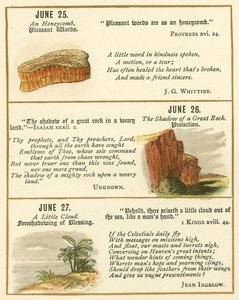 JUNE 25.
An Honeycomb.
Pleasant Words.
"Pleasant words are as an honeycomb."
PROVERBS xvi. 24.
A little word in kindness spoken,
A motion, or a tear;
Has often healed the heart that's broken,
And made a friend sincere.
J. G. WHITTIER.
"The shadow of a great rock in a weary
land."—ISAIAH xxxii. 2.
Thy prophets, and Thy preachers, Lord,
through all the earth have sought
Emblems of Thee, whose sole command
that earth from chaos wrought,
But never truer one than this was found,
nor one more grand,
The shadow of a mighty rock upon a weary
land."
UNKNOWN.
JUNE 26.
The Shadow of a Great Rock.
Protection.
JUNE 27.
A Little Cloud.
Foreshadowing of Blessing.
"Behold, there ariseth a little cloud out of
the sea, like a man's hand."
1 KINGS xviii. 44.
If the Celestials daily fly
With messages on missions high,
And float, our masts and turrets nigh,
Conversing on Heaven's great intents;
What wonder hints of coming things,
Whereto man's hope and yearning clings,
Should drop like feathers from their wings,
And give us vague presentiments?
JEAN INGELOW.